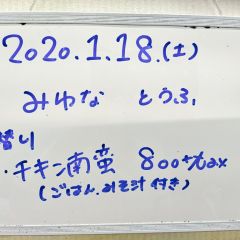 2020.1.18.(土)
みゆな とうふ
替り
・チキン南蛮 800+tax
(ごはん.みそ汁付き)